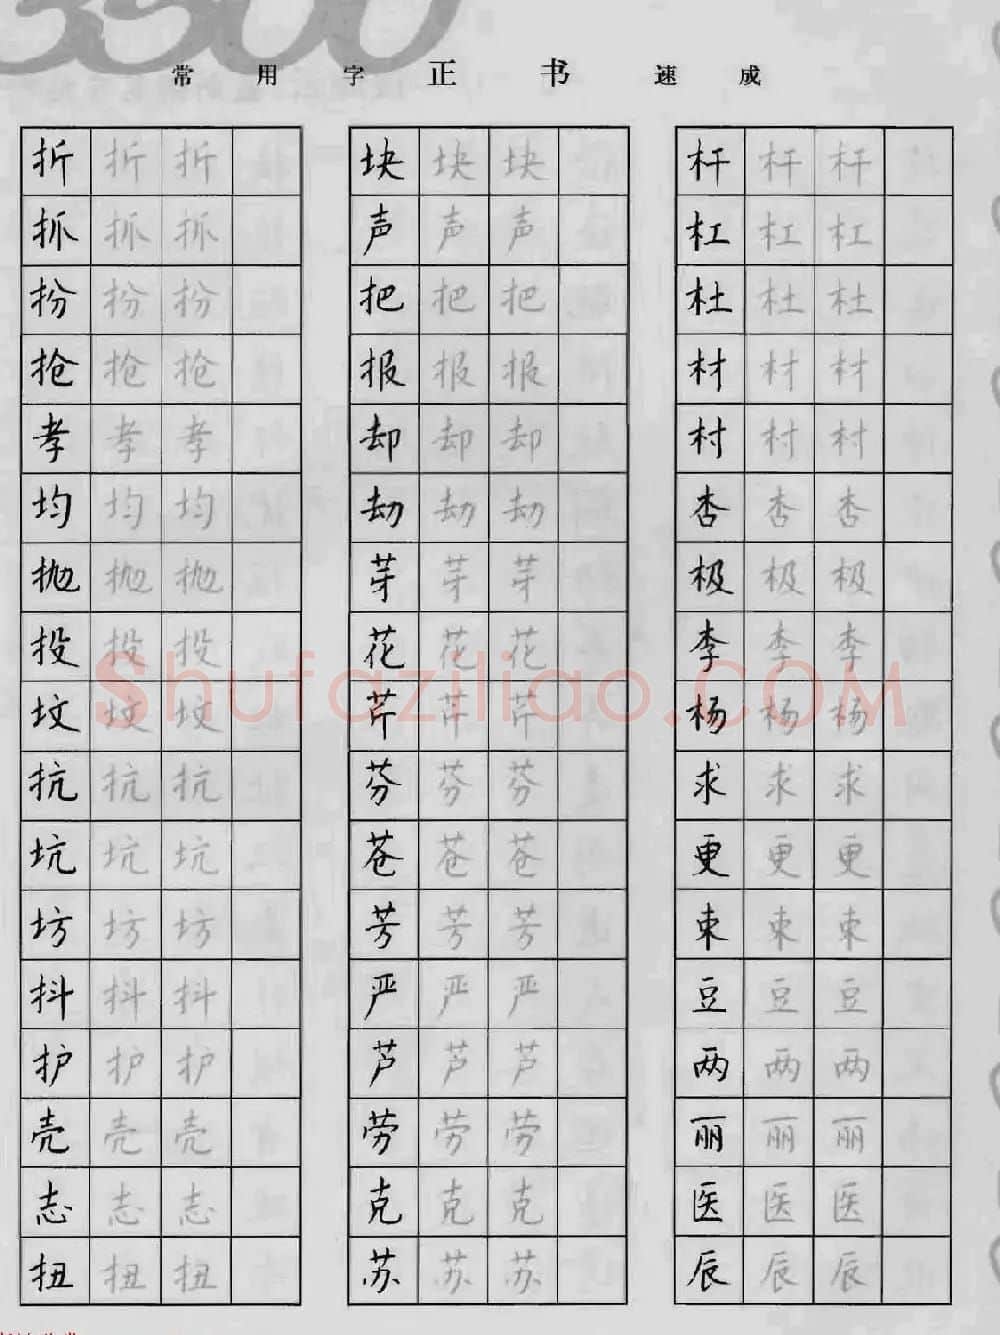 3500
常用字正书速成
折 折 折 块 块 块 杆 杆 杆
抓 抓 抓 声 声 声 杠 杠 杠
扮 扮 扮 把 把 把 杜 杜 杜
抢 抢 抢 报 报 报 材 材 材
孝 孝 孝 却 却 却 村 村 村
均 均 均 劫 劫 劫 杏 杏 杏
抛 抛 抛 芽 芽 芽 极 极 极
投 投 投 花 花 花 李 李 李
坟 坟 坟 芹 芹 芹 杨 杨 杨
抗 抗 抗 芬 芬 芬 求 求 求
坑 坑 坑 苍 苍 苍 更 更 更
坊 坊 坊 芳 芳 芳 束 束 束
抖 抖 抖 严 严 严 豆 豆 豆
护 护 护 芦 芦 芦 两 两 两
壳 壳 壳 劳 劳 劳 丽 丽 丽
志 志 志 克 克 克 医 医 医
扭 扭 扭 苏 苏 苏 辰 辰 辰
Shufaziliao.COM